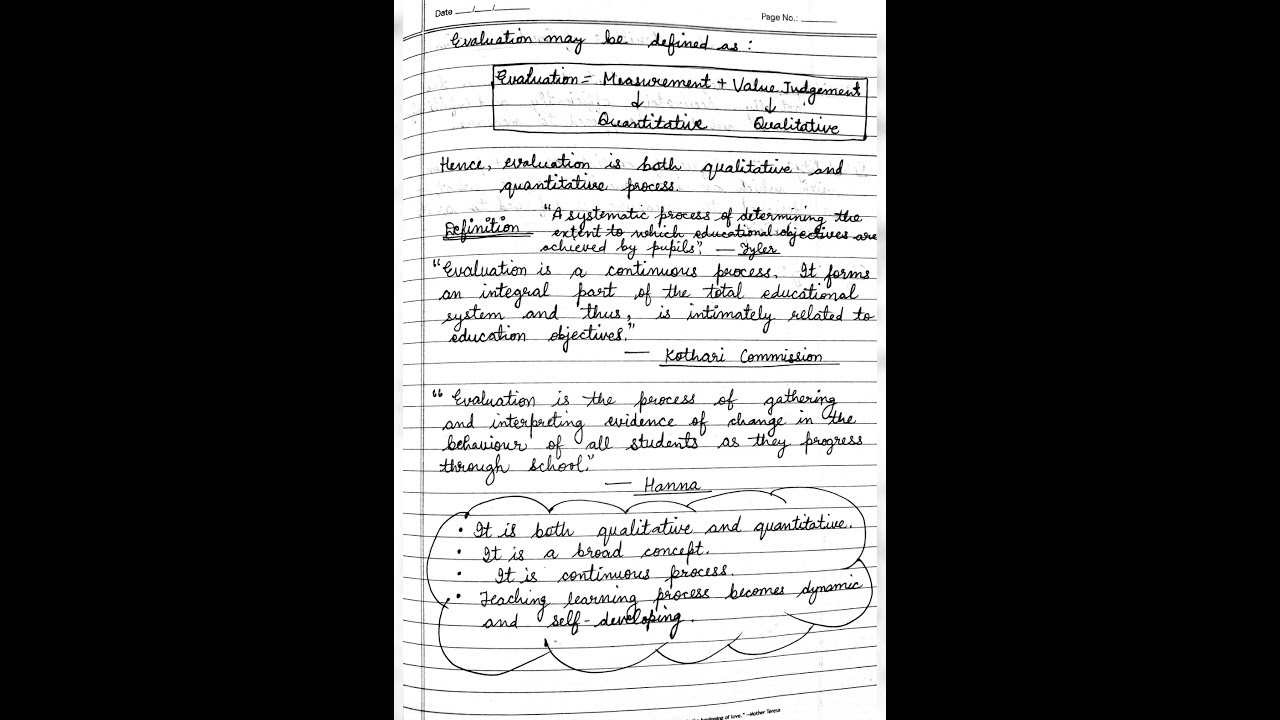 Date __/__/__
Page No.: ____
Evaluation may be defined as :
Evaluation = Measurement + Value Judgement
↓ ↓
Quantitative Qualitative
Hence, evaluation is both qualitative and
quantitative process.
Definition "A systematic process of determining the
extent to which educational objectives are
achieved by pupils". — Tyler
"Evaluation is a continuous process. It forms
an integral part of the total educational
system and thus, is intimately related to
education objectives."
— Kothari Commission
"Evaluation is the process of gathering
and interpreting evidence of change in the
behaviour of all students as they progress
through school."
— Hanna
• It is both qualitative and quantitative.
• It is a broad concept.
• It is continuous process.
• Teaching learning process becomes dynamic
and self-developing.
beginning of love." –Mother Teresa